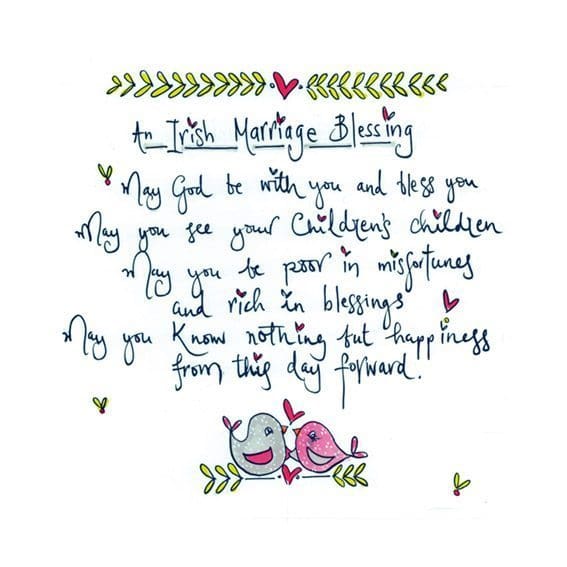 An Irish Marriage Blessing
May God be with you and bless you
May you see your Children's children
May you be poor in misfortunes
and rich in blessings
May you Know nothing but happiness
from this day forward.